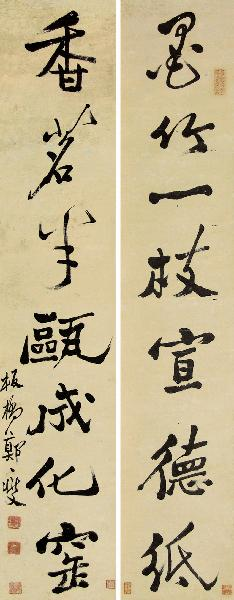 墨竹一枝宣德纸
香茗半瓯成化窑
板橋鄭燮